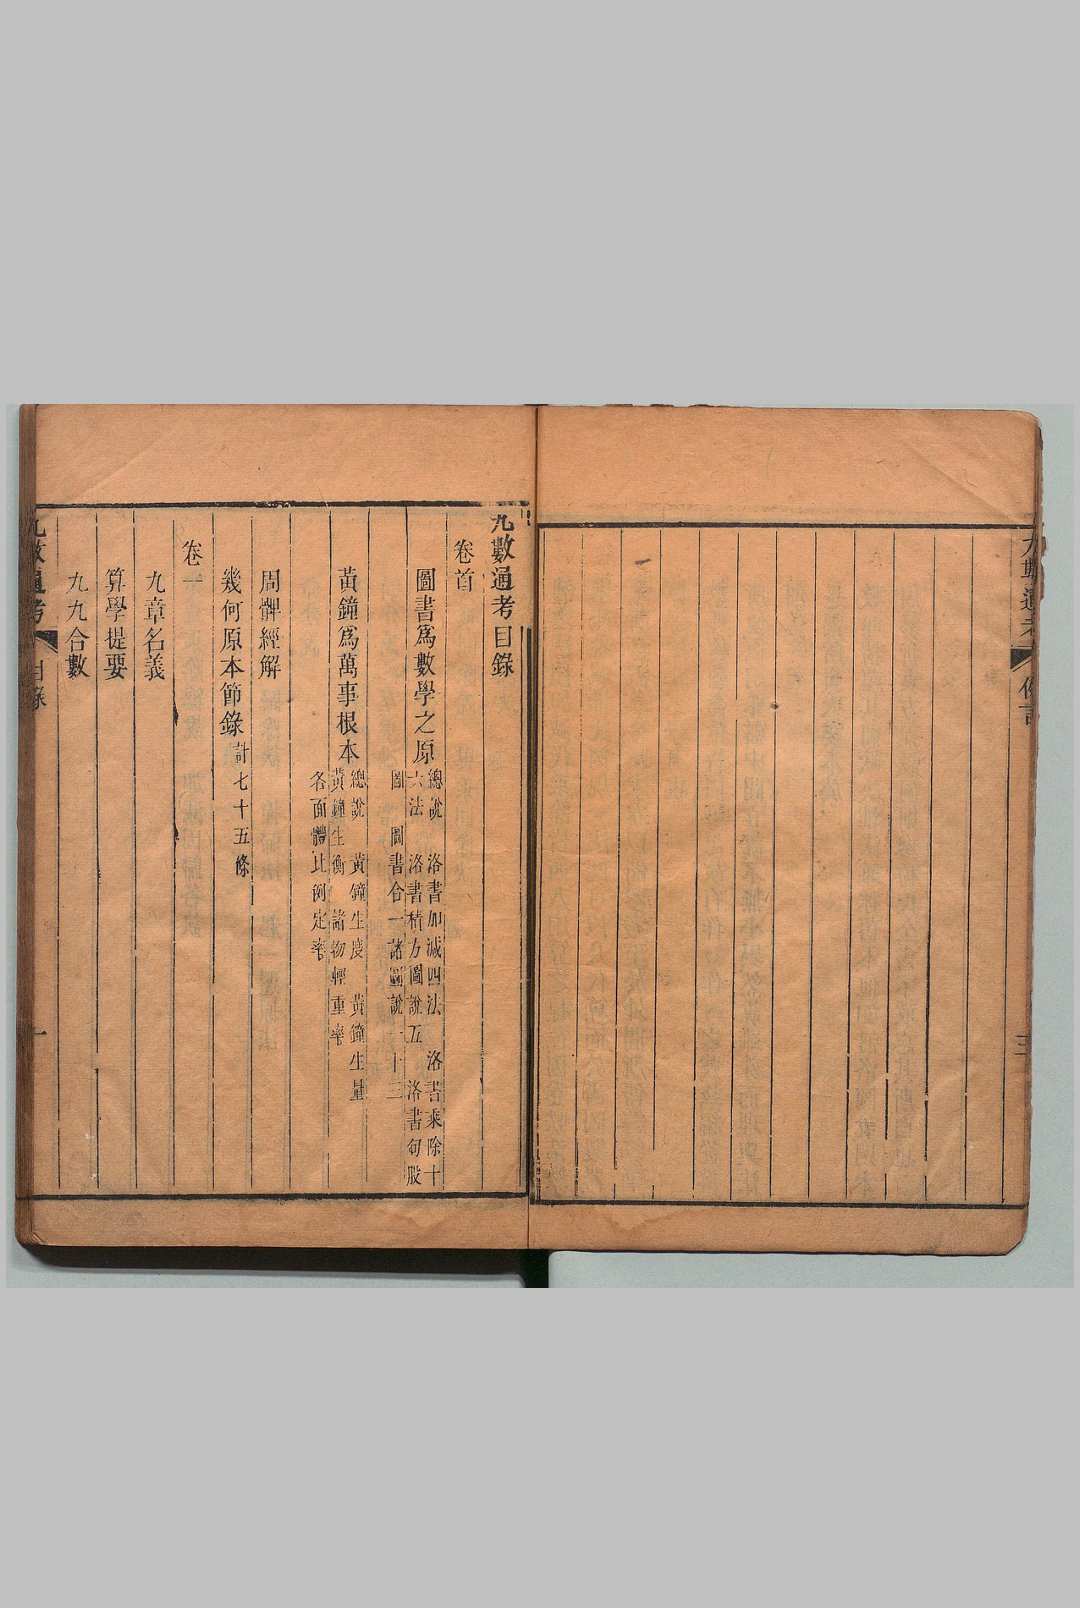 九數通考
例言
三
九數通考目錄
卷首
圖書爲數學之原
總說 洛書加減四法 洛書乘除十
六法 洛書積方圖說五 洛書句股
圖 圖書合一諸圖說一十三
黃鐘爲萬事根本
總說 黃鐘生度 黃鐘生量
黃鐘生衡 諸物輕重率
各面體比例定率
周髀經解
幾何原本節錄計七十五條
卷一
九章名義
算學提要
九九合數
九數通考
目錄
一